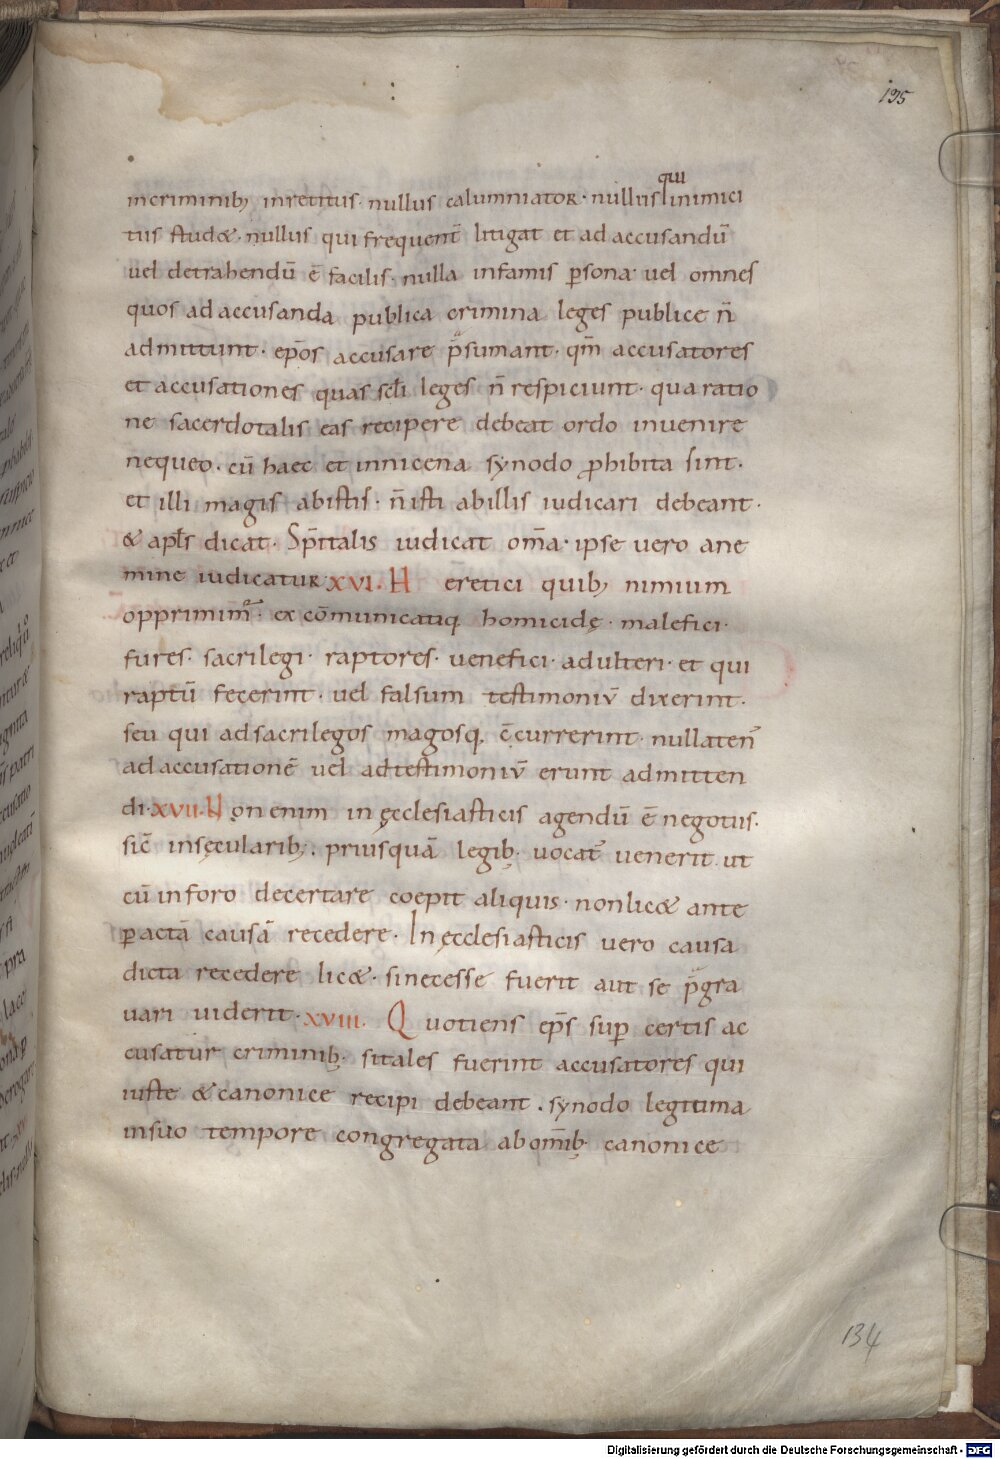 195
incriminib; inretitus· nullus calumniator· nullus qui inimici
tiis stud&· nullus qui frequent̄ litigat et ad accusandū
uel detrahendū ē facilis· nulla infamis ꝑsona· uel omnes
quos ad accusanda publica crimina leges publice n̄
admittunt· ep̄os accusare p̄sumant· qm̄ accusatores
et accusationes quas scłi leges n̄ respiciunt· qua ratio
ne sacerdotalis eas recipere debeat ordo inuenire
nequeo· cū haec et innicena synodo ꝓhibita sint·
et illi magis abistis· n̄ isti abillis iudicari debeant·
& apłs dicat· Sp̄italis iudicat om̄a· ipse uero ane
mine iudicatur· XVI· Heretici quib; nimium
opprimim᷒· excōmunicatiq; homicidę· malefici·
fures· sacrilegi· raptores· uenefici· adulteri· et qui
raptū fecerint· uel falsum testimoniū dixerint·
seu qui ad sacrilegos magosq; c̄currerint· nullaten᷒
ad accusationē uel ad testimoniū erunt admitten
di· XVII· Non enim in ęcclesiasticis agendū ē negotiis·
sic̄ insęcularib;· priusquā legib; uocat᷒ uenerit ut
cū in foro decertare coepit aliquis· non lic& ante
ꝑactā causā recedere· In ęcclesiasticis uero causa
dicta recedere lic&· si necesse fuerit aut se p̄gra
uari uiderit· XVIII· Quotiens ep̄s suꝑ certis ac
cusatur criminib;· si tales fuerint accusatores qui
iuste & canonice recipi debeant· synodo legitima
in suo tempore congregata ab om̄ib; canonice
134
Digitalisierung gefördert durch die Deutsche Forschungsgemeinschaft - DFG